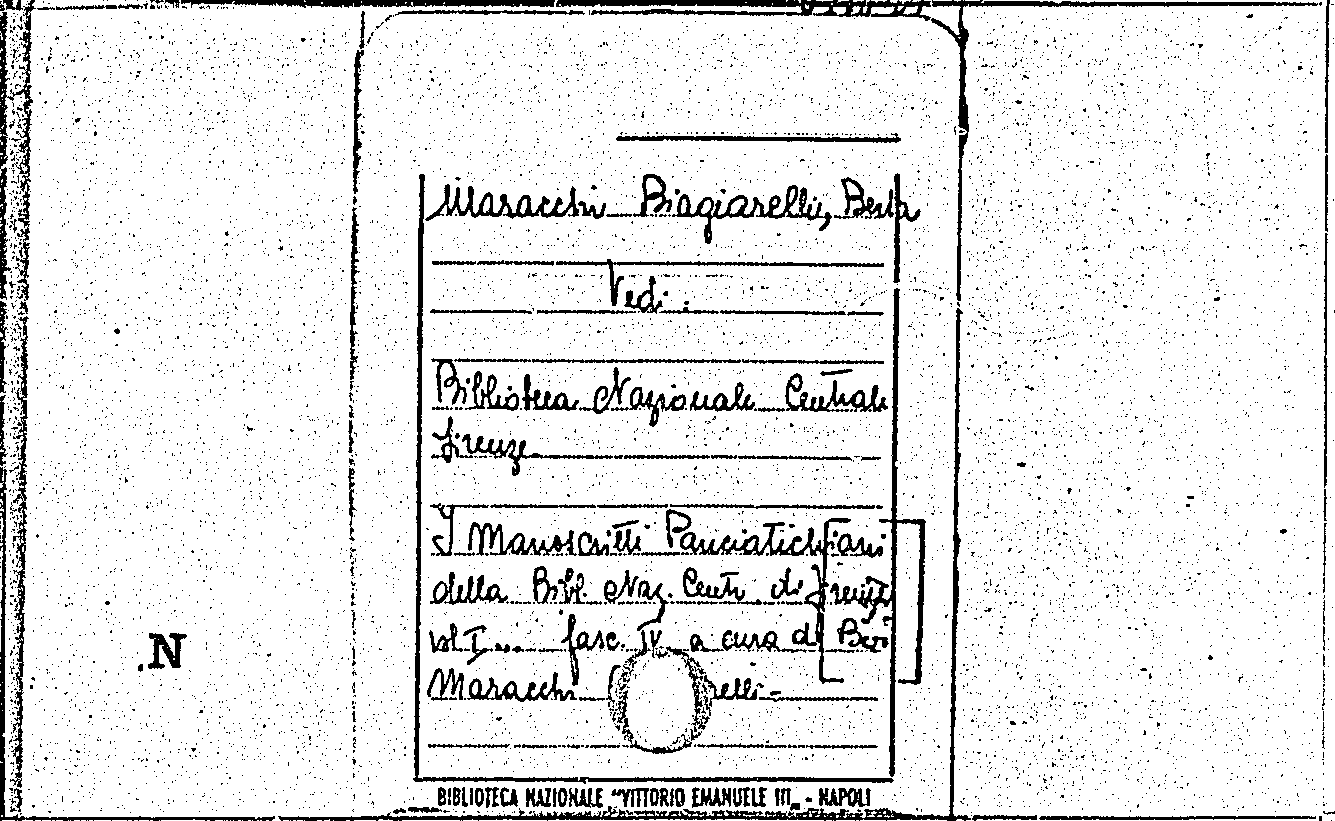 Maracchi Biagiarelli, Berta
Vedi:
Biblioteca Nazionale Centrale
Firenze
I Manoscritti Panciatichiani
della Bibl. Naz. Centr. di Firenze
vol I... fasc. IV a cura di
Maracchi relli-
.N
BIBLIOTECA NAZIONALE "VITTORIO EMANUELE III" - NAPOLI